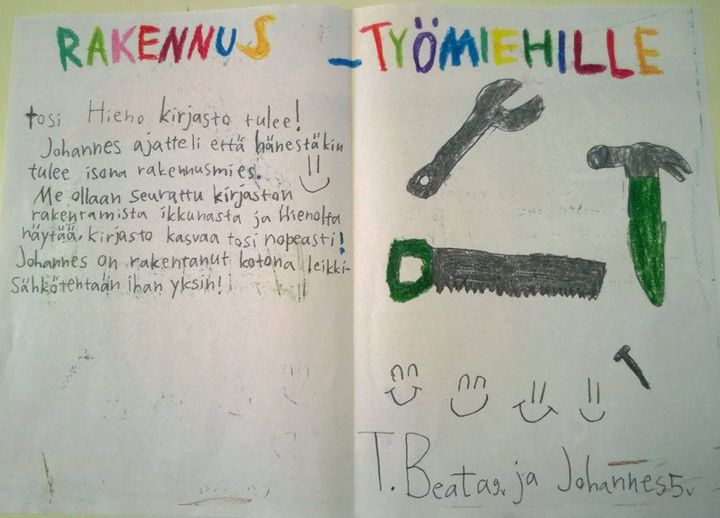 RAKENNUS
-TYÖMIEHILLE
tosi Hieno kirjasto tulee!
Johannes ajatteli että hänestäkin
tulee isona rakennusmies.
Me ollaan seurattu kirjaston
rakentamista ikkunasta ja Hienolta
näytää. kirjasto kasvaa tosi nopeasti!
Johannes on rakentanut kotona leikki-
Sähkötehtaan ihan yksin!
T. Beata 9v ja Johannes 5v